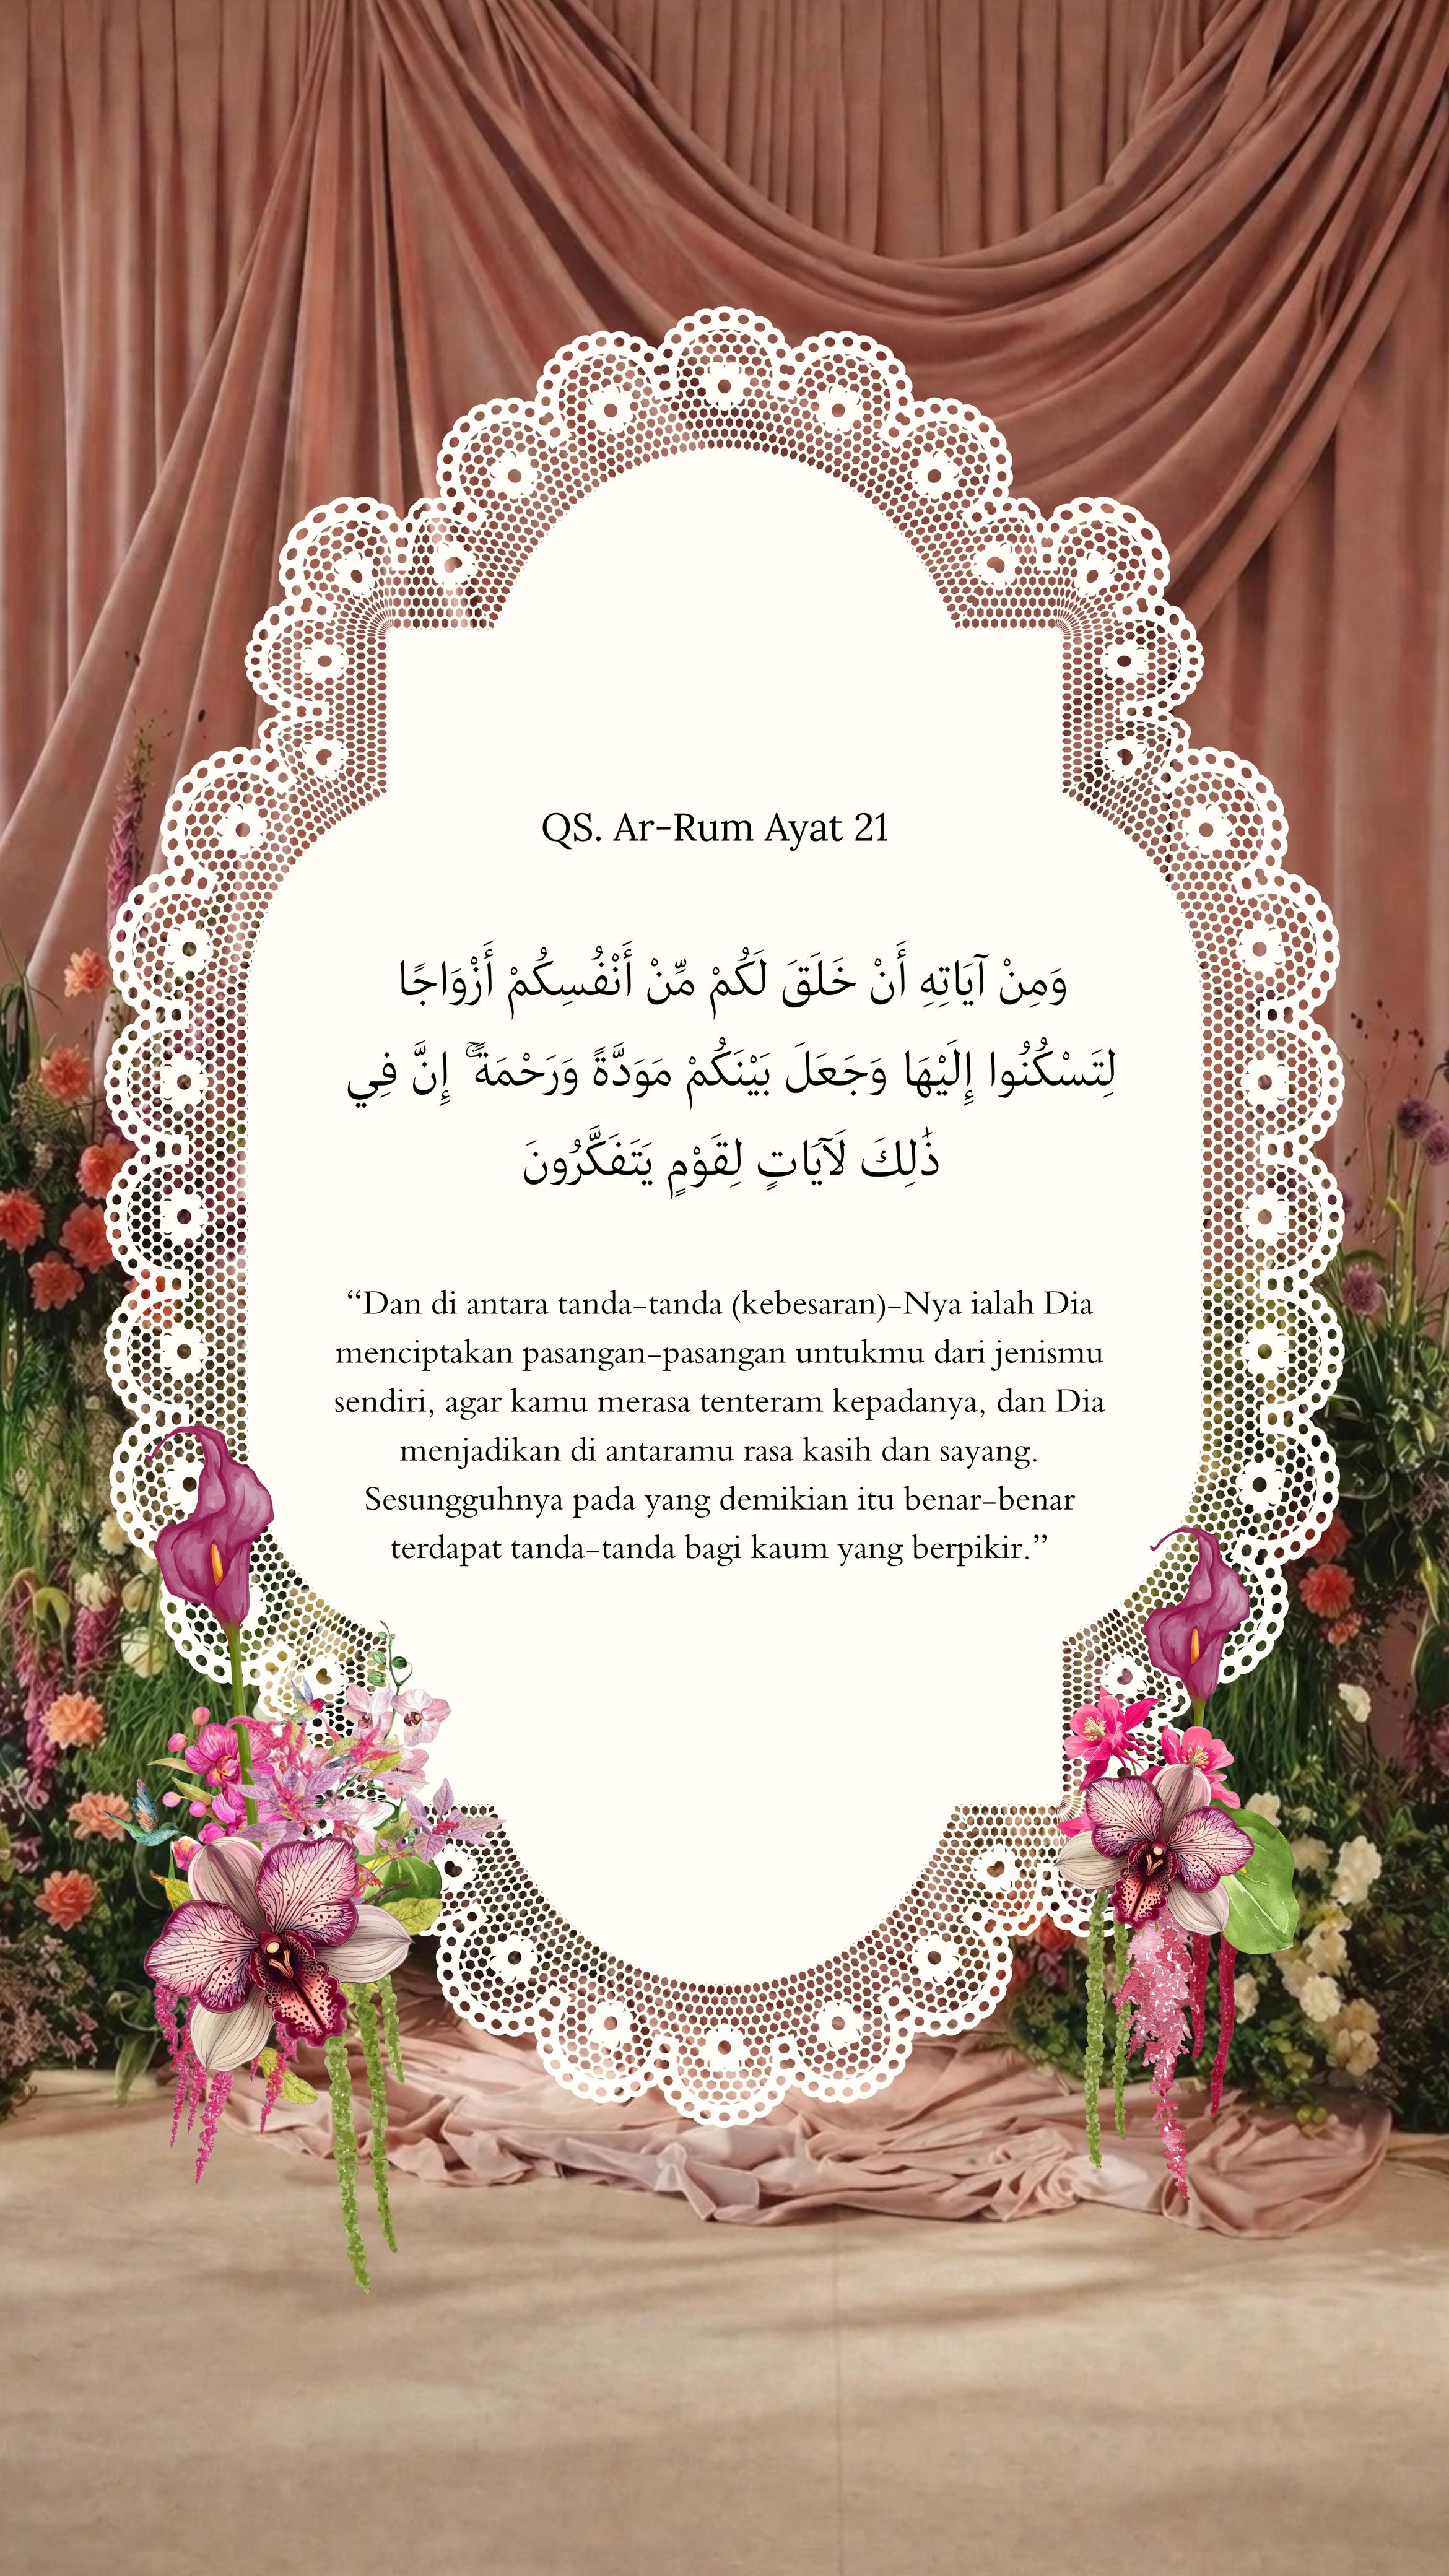 QS. Ar-Rum Ayat 21
وَمِنْ آيَاتِهِ أَنْ خَلَقَ لَكُمْ مِّنْ أَنْفُسِكُمْ أَزْوَاجًا
لِتَسْكُنُوا إِلَيْهَا وَجَعَلَ بَيْنَكُمْ مَوَدَّةً وَرَحْمَةً ۚ إِنَّ فِي
ذَٰلِكَ لَآيَاتٍ لِقَوْمٍ يَتَفَكَّرُونَ
“Dan di antara tanda-tanda (kebesaran)-Nya ialah Dia
menciptakan pasangan-pasangan untukmu dari jenismu
sendiri, agar kamu merasa tenteram kepadanya, dan Dia
menjadikan di antaramu rasa kasih dan sayang.
Sesungguhnya pada yang demikian itu benar-benar
terdapat tanda-tanda bagi kaum yang berpikir.”